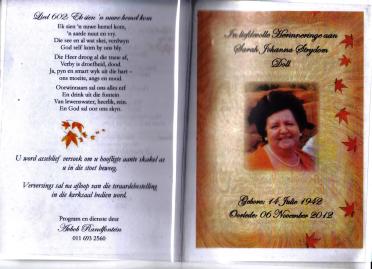 Lied 602: Ek sien 'n nuwe hemel kom
Ek sien 'n nuwe hemel kom,
'n aarde nuut en vry.
Die see en al wat skei, verdwyn
God self kom by ons bly.
Die Heer droog al die trane af,
Verby is droefheid, dood.
Ja, pyn en smart wyk uit die hart –
ons moeite, angs en nood.
Oorwinnaars sal ons alles erf
En drink uit die fontein
Van lewenswater, heerlik, rein.
En God sal oor ons skyn.
U word asseblief versoek om u hoofligte aante skakel as
u in die stoet beweeg.
Verversings sal na afloop van die teraardebestelling
in die kerksaal bedien word.
Program en dienste deur
Avbob Randfontein
011 693 2560
In liefdevolle Herinneringe aan
Sarah, Johanna Strydom
Doll
Gebore: 14 Julie 1942
Oorlede: 06 November 2012